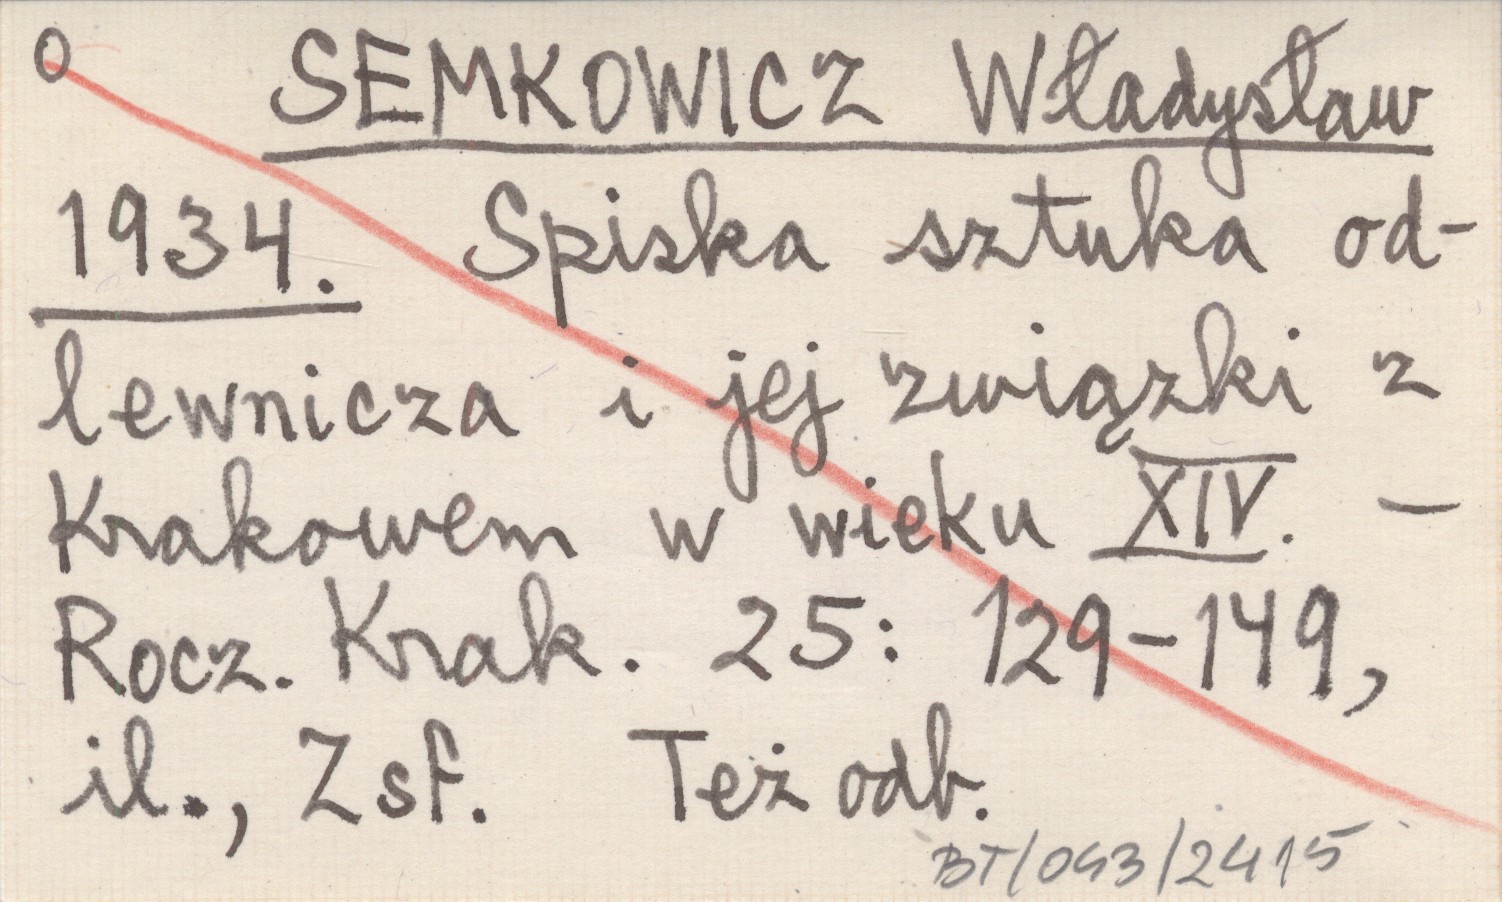 O SEMKOWICZ Władysław
1934. Spiska sztuka od-
lewnicza i jej związki z
Krakowem w wieku XIV. –
Rocz. Krak. 25: 129–149,
il., Zsf. Też odb.
BT/043/2415